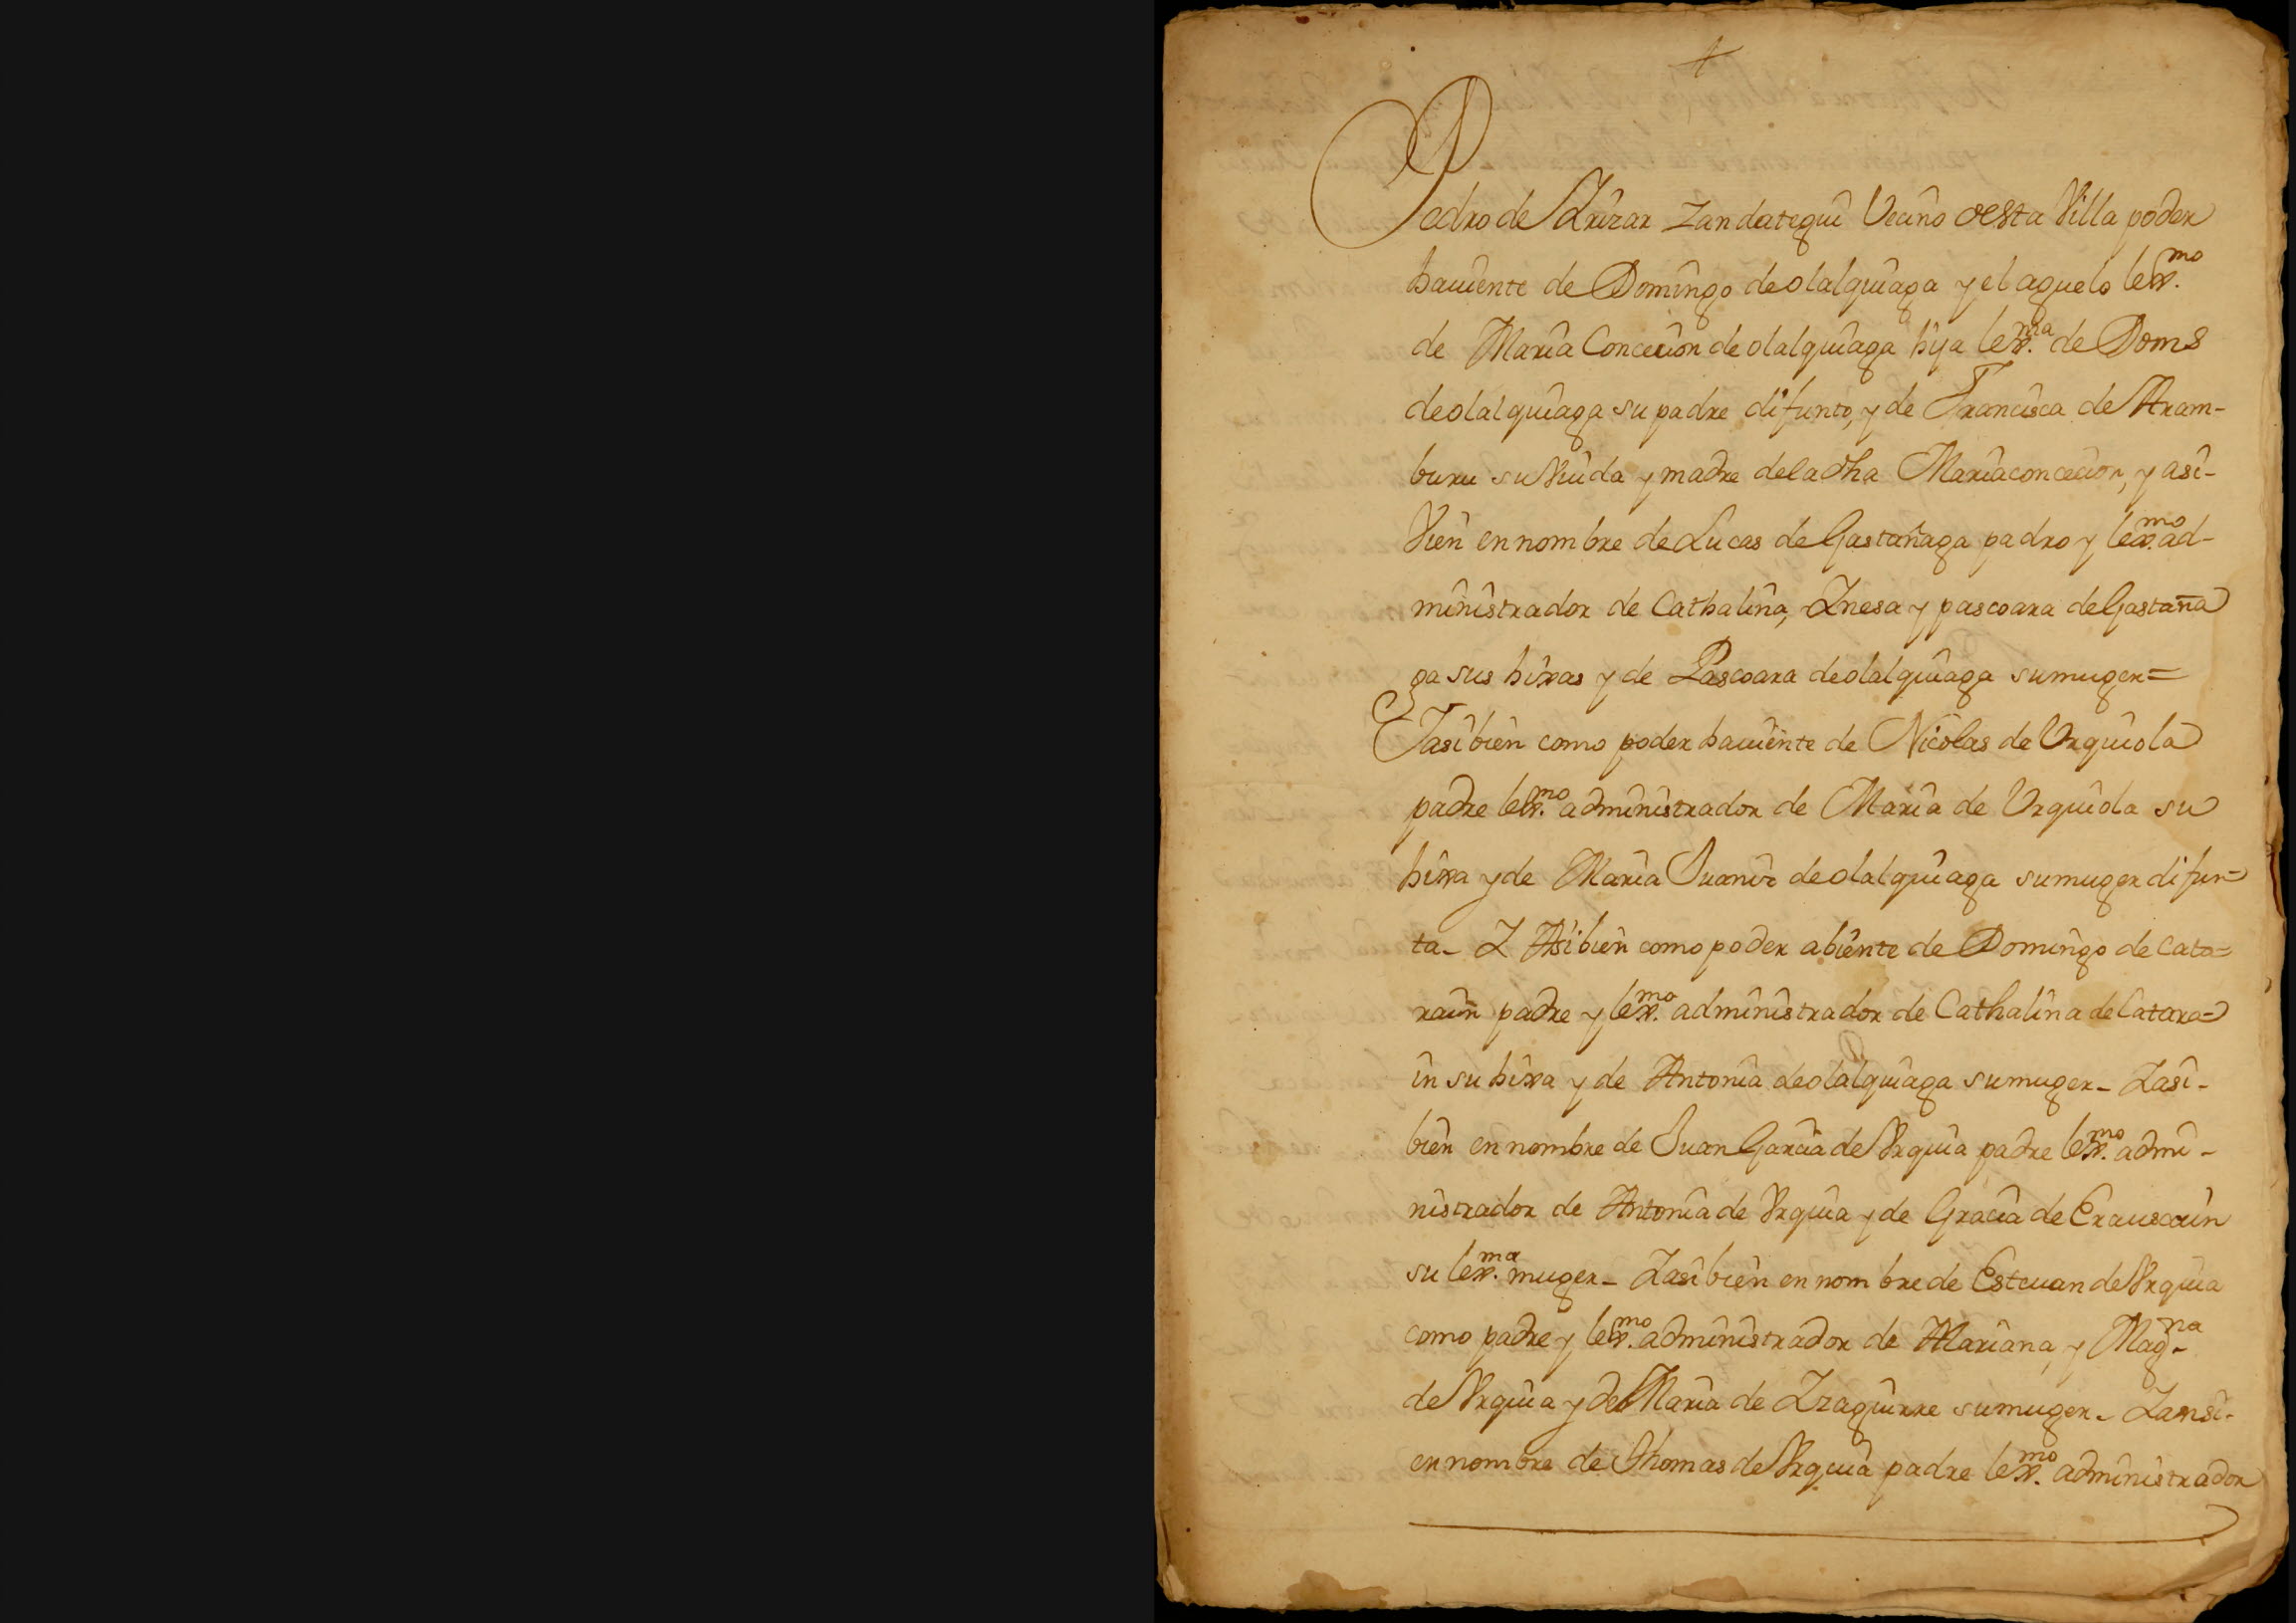 +
Pedro de Yrizar Zandategui Vecino desta Villa poder
haviente de Domingo de olalquiaga y el aguelo lexmo.
de Maria Concecion de olalquiaga hija lexma. de Doms
de olalquiaga su padre difunto, y de Francisca de Aram-
buru su Viuda y madre de la dha Maria concecion, y asi-
Vien en nombre de Lucas de Gastañaga padro y lexmo. ad-
ministrador de Cathalina, Ynesa y pascoara de Gastaña
ga sus hixas y de Pascoara de olalquiaga su muger=
Yasi bien como poder haviente de Nicolas de Urquiola
padre lexmo. administrador de Maria de Urquiola su
hixa y de Maria Juaniz de olalquiaga su muger difun=
ta- Y Asi bien como poder abiente de Domingo de Cata=
rain padre y lexmo. administrador de Cathalina de Catara=
in su hixa y de Antonia de olalquiaga su muger- Yasi-
bien en nombre de Juan Garcia de Vrquia padre lexmo. admi-
nistrador de Antonia de Vrquia y de Gracia de Erauscoin
su lexma. muger- Yasi bien en nombre de Estevan de Vrquia
como padre y lexmo. administrador de Mariana, y Magna-
de Vrquia y de Maria de Yzaguirre su muger- Yansi-
en nombre de Thomas de Vrquia padre lexmo. administrador